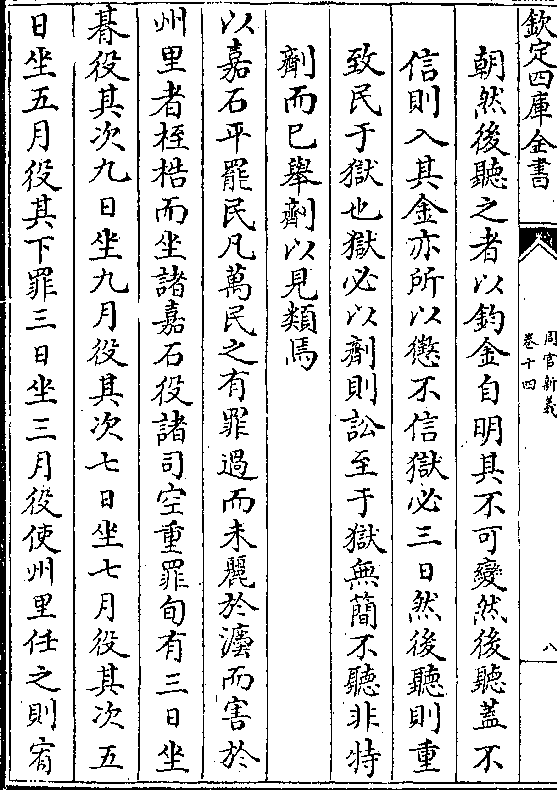 欽定四庫全書
周官新義
卷十四
八
朝然後聽之者以鈞金自明其不可變然後聽蓋不
信則入其金亦所以懲不信獄必三日然後聽則重
致民于獄也獄必以劑則訟至于獄無簡不聽非特
劑而已舉劑以見類焉
以嘉石平罷民凡萬民之有罪過而未麗於灋而害於
州里者桎梏而坐諸嘉石役諸司空重罪旬有三日坐
朞役其次九日坐九月役其次七日坐七月役其次五
日坐五月役其下罪三日坐三月役使州里任之則宥